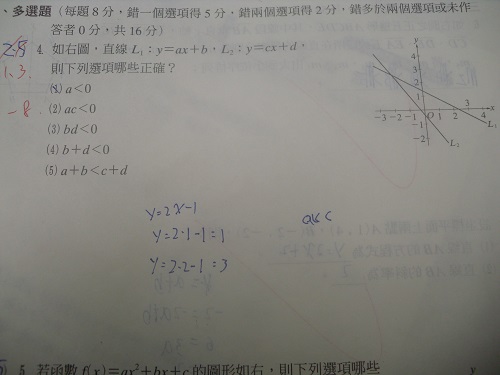 、多選題（每題 8 分，錯一個選項得 5 分，錯兩個選項得 2 分，錯多於兩個選項或未作
答者 0 分，共 16 分）
4. 如右圖，直線 L₁：y＝ax＋b，L₂：y＝cx＋d，
則下列選項哪些正確？
1.3.
(1) a＜0
-8
(2) ac＜0
(3) bd＜0
(4) b＋d＜0
(5) a＋b＜c＋d
y
3
2
1
-3 -2 -1 O 1 2 3 4 x
-1
-2
L₁
L₂
y=2x-1
y=2·1-1=1
y=2·2-1=3
a<c
5. 若函數 f(x)＝ax²＋bx＋c 的圖形如右，則下列選項哪些
y